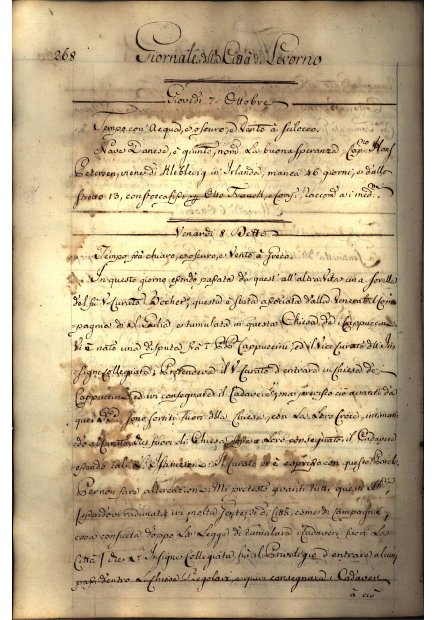 268
Giornale della Città di Livorno
Giovedi 7. Ottobre
Tempo con Acqua, e oscuro, e Vento à scilocco.
Nave Danese, è giunto, nom.ta La buona speranza, Cap.no
Petersen, viene di in Irlanda, manca 46 giorni, e dallo
stretto 13, con stocafissi Otto Franck, e Comp.
Venardi 8. Detto
Tempo frà chiaro, e oscuro, e Vento à Greco.
In questo giorno essendo passata da quest' all' altra Vita una sorella
del Sig. Curato questa è stata associata dalla Venerabil Com
pagnia di S. Giulia, e tumulata in questa Chiesa de Cappuccini
Vi è nato una disputa frà i Cappuccini, ed il Vice Curato dell' In
signe Collegiata; Pretendeva il V. Curato d'entrare in Chiesa de
Cappuccini, ed ivi consegnare il Cadavere, mà avanti da
quei sono sortiti fuori della Chiesa, con La Loro Croce, intiman
do al Curato fuori di Chiesa Loro consegnato il Cadavere
essendo tali Il Curato si è espresso con queste Parole
Per non fare altercazione Mi protesto avanti tutti questi
essendovi radunate ivi, molta Gente si di Città, come di Campagna,
cosa consueta doppo La Legge di tumulare i Cadaveri fuori La
Città, L' Insigne Collegiata hà il Privilegio d'entrare alcuni
passi dentro Le Chiese Regolari, e quivi consegnare i Cadaveri
à ciò